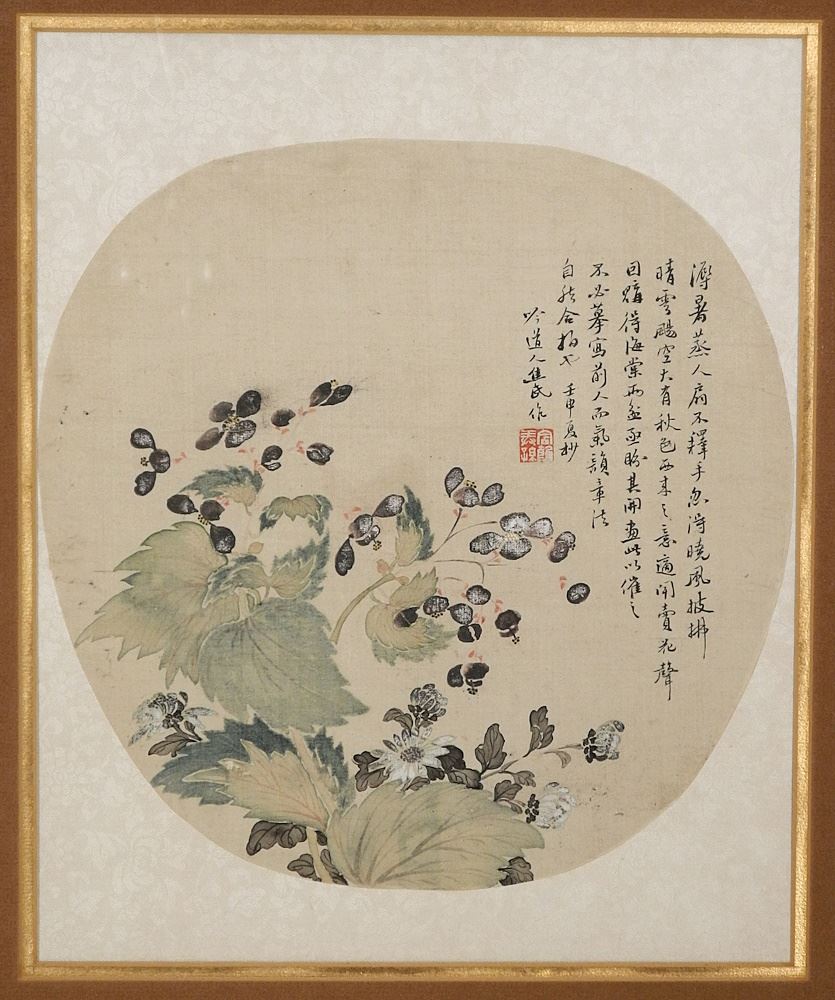 溽暑蒸人扇不釋手忽得曉風披拂
晴雲颺空大有秋色西来之意適聞賣花聲
回購得海棠兩盆亟盼其開畫此以催之
不必摹寫前人而氣韻章法
自然合拍也 壬申夏杪
吟道人 民作